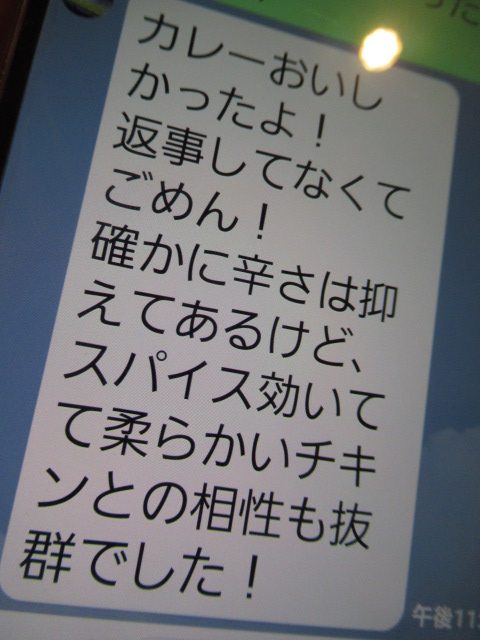 カレーおいし
かったよ！
返事してなくて
ごめん！
確かに辛さは抑
えてあるけど、
スパイス効いて
て柔らかいチキ
ンとの相性も抜
群でした！
午後11: